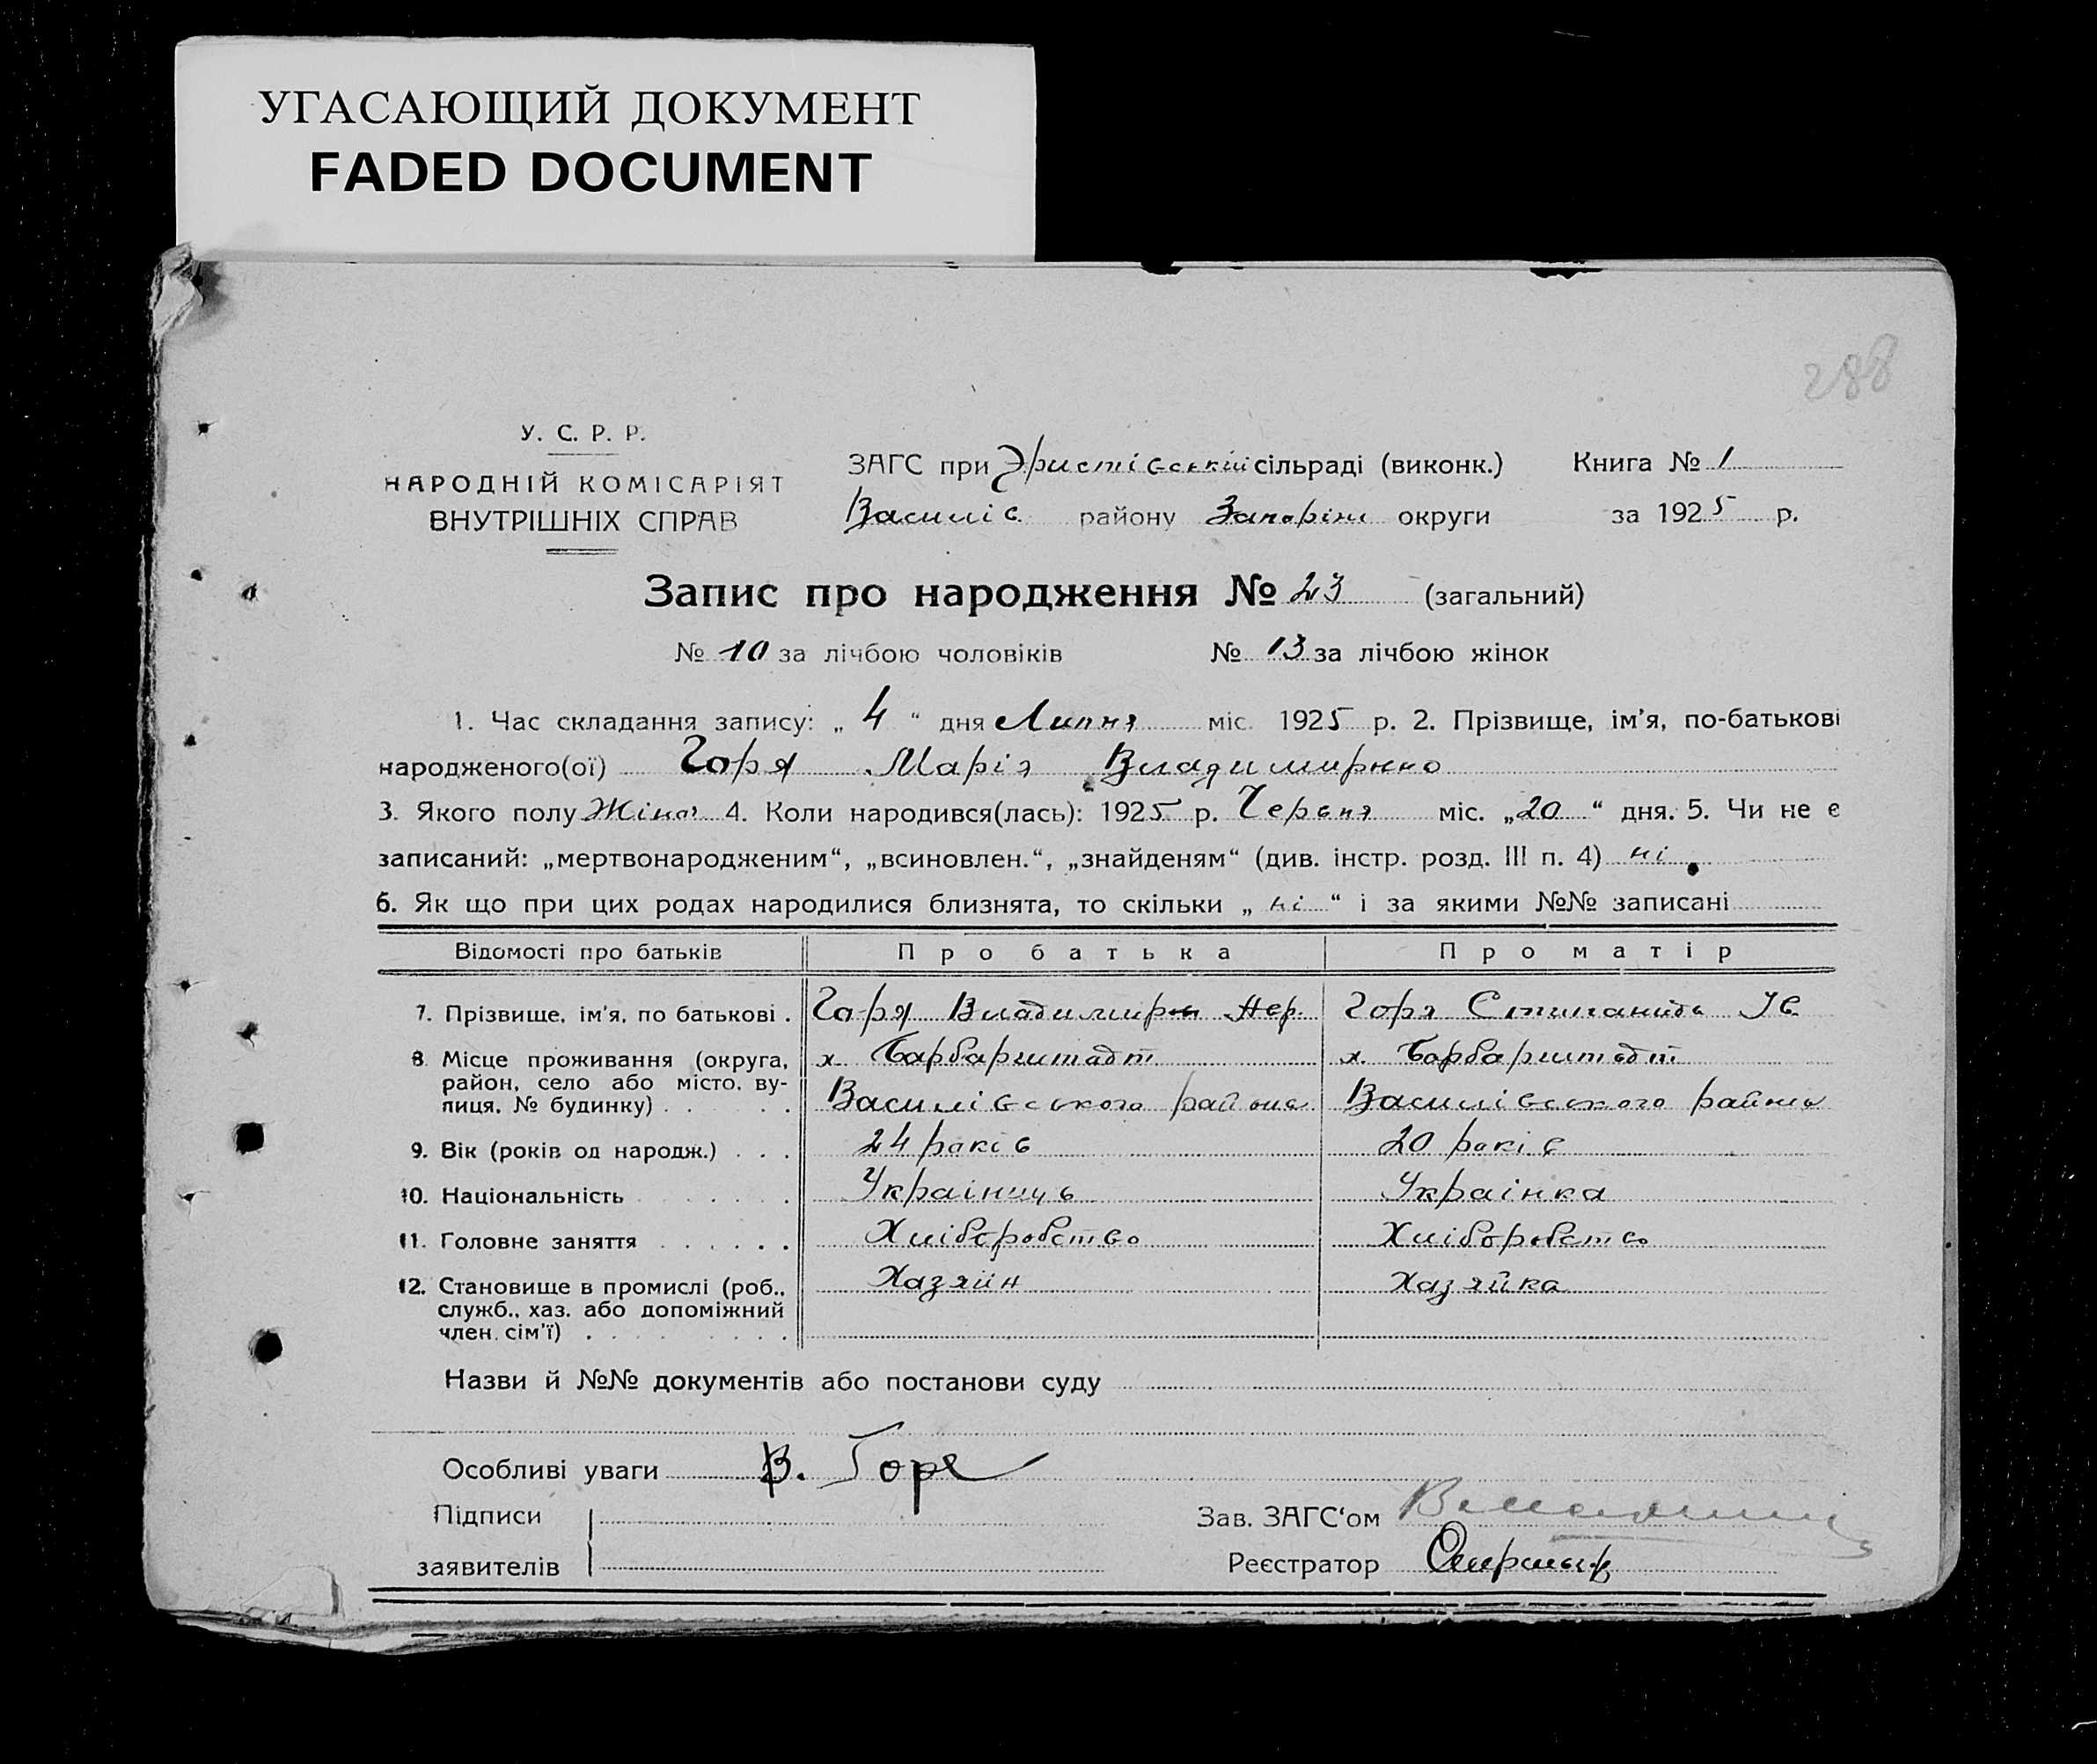 УГАСАЮЩИЙ ДОКУМЕНТ
FADED DOCUMENT
288
У. С. Р. Р.
НАРОДНІЙ КОМІСАРІЯТ
ВНУТРІШНІХ СПРАВ
ЗАГС при Эристівській сільраді (виконк.) Книга № 1
Василів. району Запоріж округи за 1925 р.
Запис про народження № 23 (загальний)
№ 10 за лічбою чоловіків № 13 за лічбою жінок
1. Час складання запису: „ 4 “ дня Липня міс. 1925 р. 2. Прізвище, ім’я, по-батькові
народженого(ої) Горя Марія Владимирнко
3. Якого полу Жіноч 4. Коли народився(лась): 1925 р. Червня міс. „20“ дня. 5. Чи не є
записаний: „мертвонародженим“, „всиновлен.“, „знайденям“ (див. інстр. розд. III п. 4) ні
6. Як що при цих родах народилися близнята, то скільки „ ні “ і за якими №№ записані
Відомості про батьків Про батька Про матір
7. Прізвище, ім’я, по батькові . Горя Владимир Горя Степанида
8 Місце проживання (округа, район, село або місто, ву-лиця, № будинку) . . . х. Барбарштадт Василівського района х. Барбарштадт Василівського района
9. Вік (років од народж.) . . . 24 років 20 років
10. Національність Украінець Украінка
11. Головне заняття Хліборобство Хліборобство
12. Становище в промислі (роб., служб., хаз. або допоміжний член. сім’ї) Хазяїн Хазяйка
Назви й №№ документів або постанови суду
Особливі уваги В. Горя
Підписи Зав. ЗАГС‘ом
заявителів Реєстратор